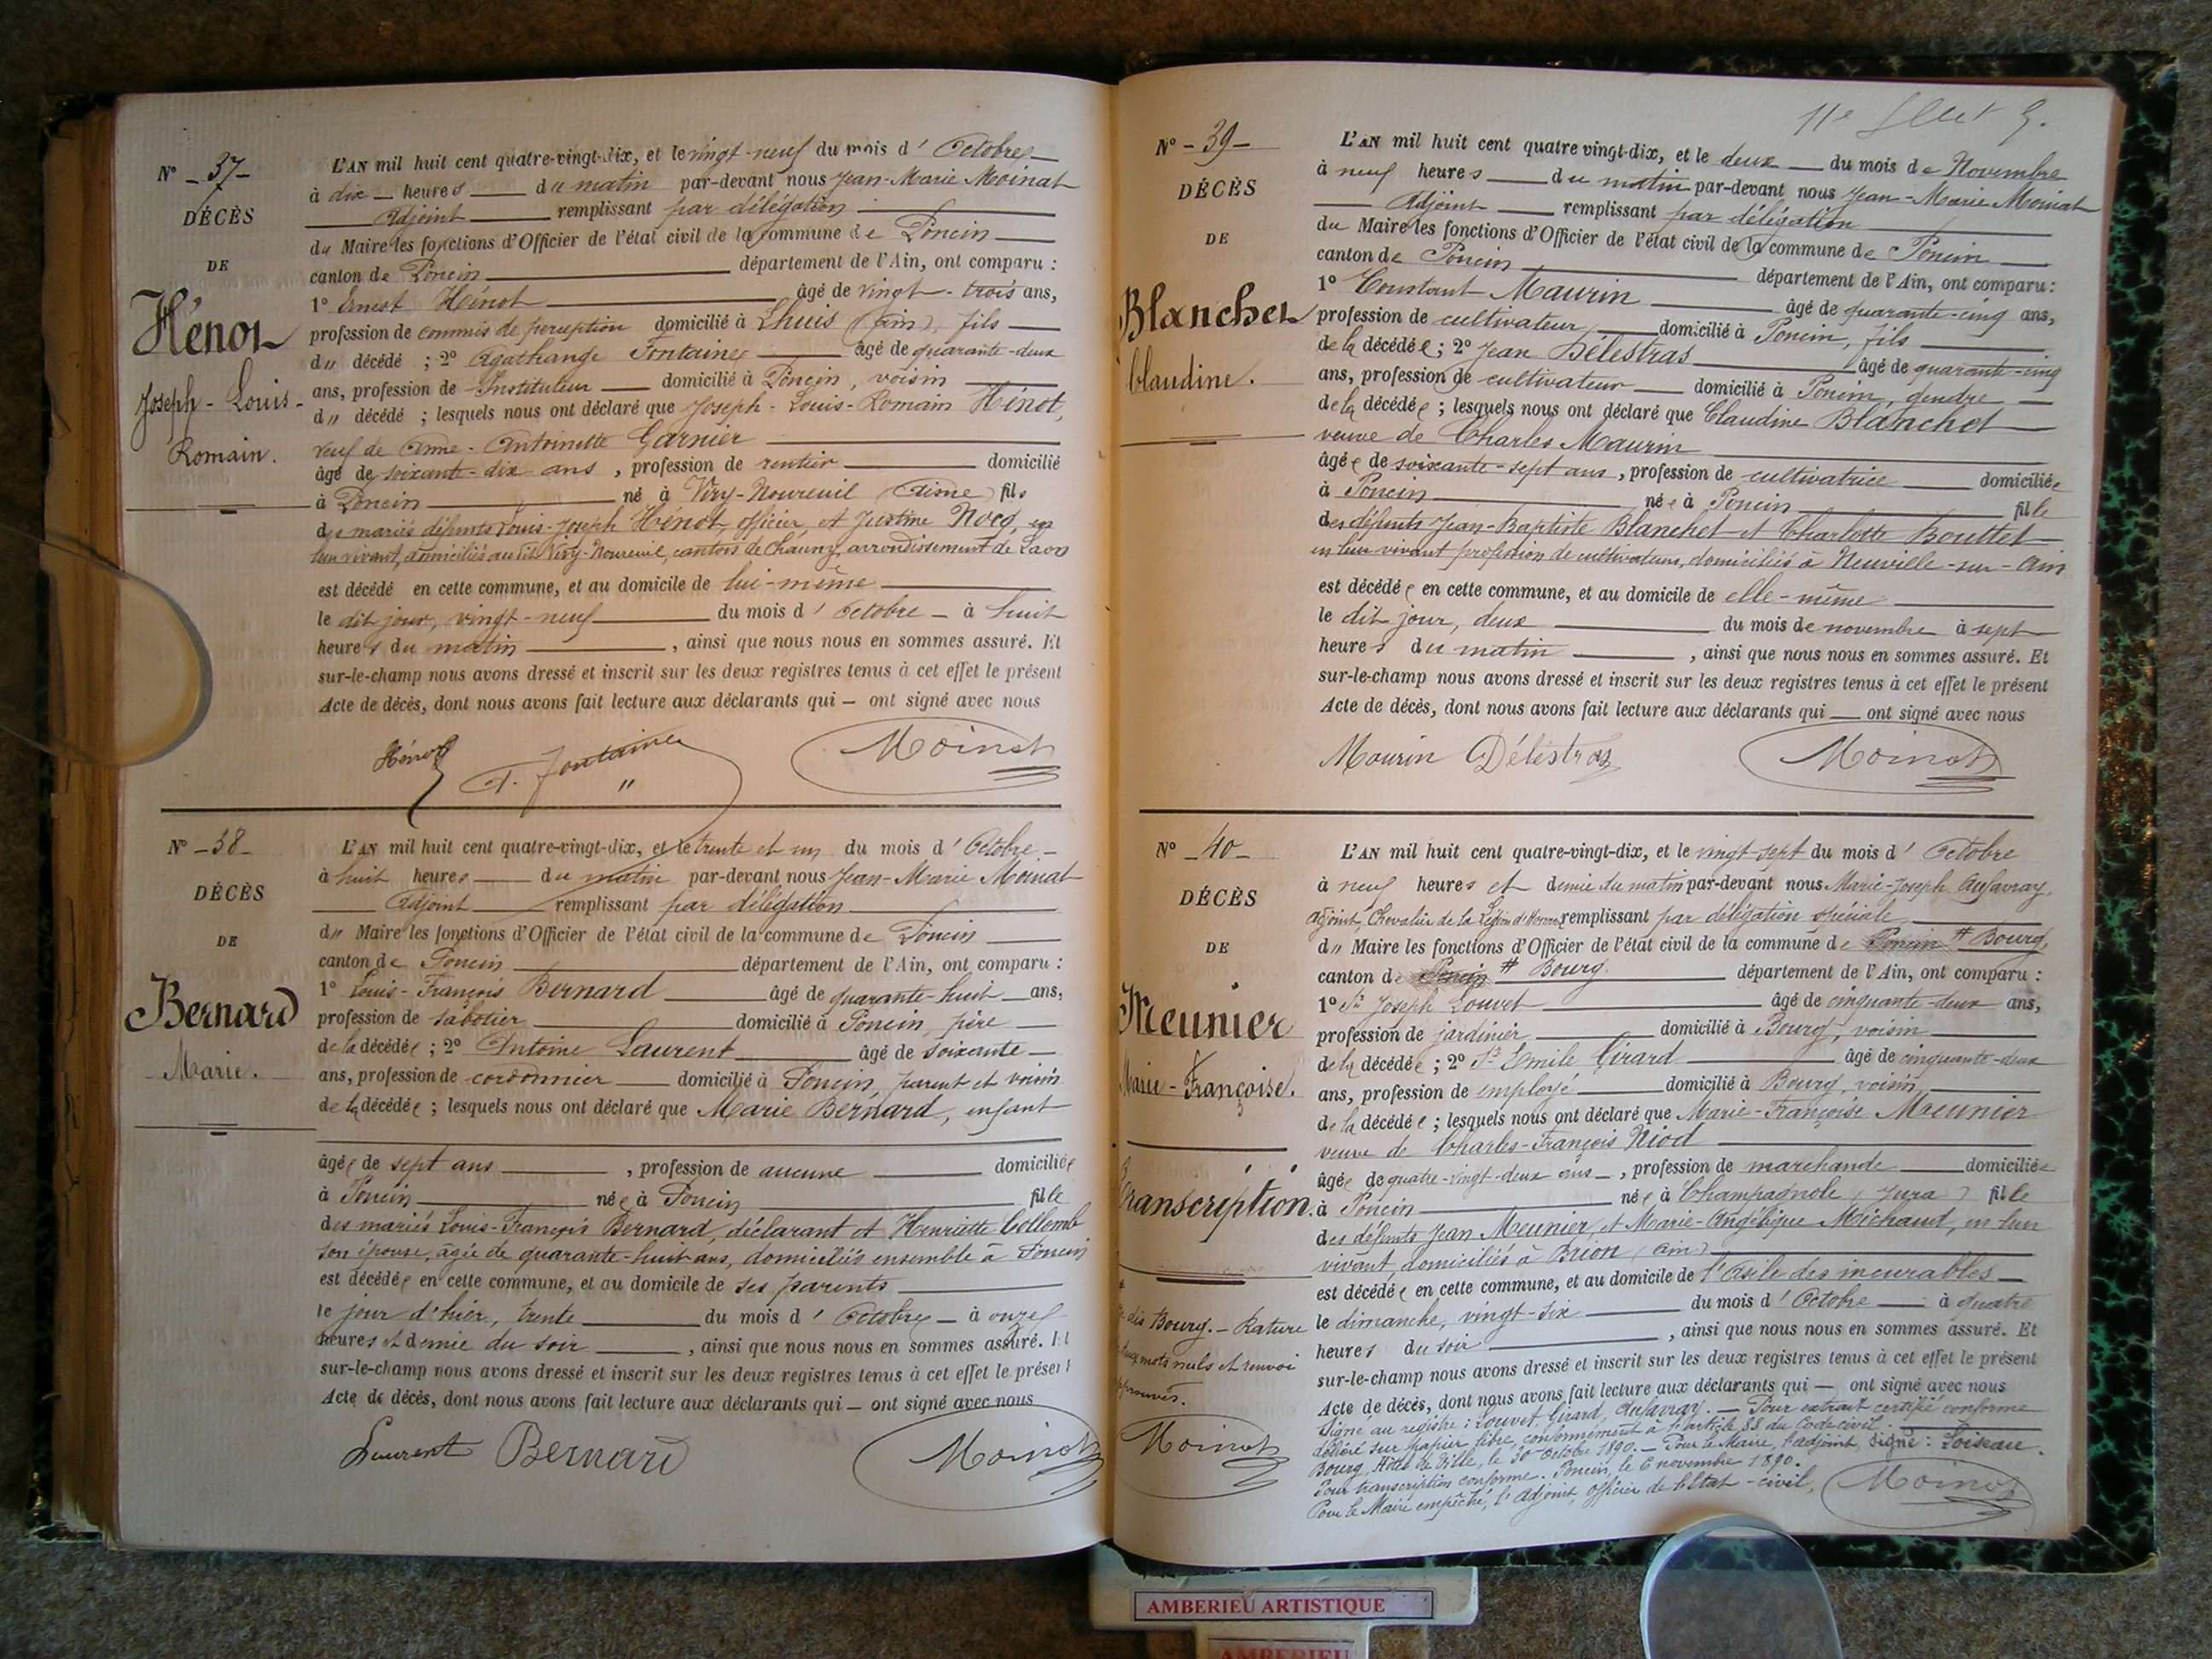 N° - 37 -
DÉCÈS
DE
Hénot
Joseph-Louis-
Romain.
L'AN mil huit cent quatre-vingt-dix, et le vingt-neuf du mois d'Octobre
à dix heures du matin par-devant nous Jean-Marie Moinat
Adjoint remplissant par délégation
du Maire les fonctions d'Officier de l'état civil de la commune de Poncin
canton de Poncin département de l'Ain, ont comparu :
1° Ernest Hénot âgé de vingt-trois ans,
profession de commis de perception domicilié à Lhuis (Ain), fils
du décédé ; 2° Agathange Fontaine âgé de quarante-deux
ans, profession de Instituteur domicilié à Poncin, voisin
du décédé ; lesquels nous ont déclaré que Joseph-Louis-Romain Hénot,
veuf de Anne-Antoinette Garnier
âgé de soixante-dix ans, profession de rentier domicilié
à Poncin né à Viry-Noureuil (Aisne) fils
des mariés défunts Louis-Joseph Hénot, officier, et Justine Nocq, en
leur vivant, domiciliés au dit Viry-Noureuil, canton de Chauny, arrondissement de Laon
est décédé en cette commune, et au domicile de lui-même
le dit jour, vingt-neuf du mois d'Octobre à huit
heures du matin, ainsi que nous nous en sommes assuré. Et
sur-le-champ nous avons dressé et inscrit sur les deux registres tenus à cet effet le présent
Acte de décès, dont nous avons fait lecture aux déclarants qui — ont signé avec nous
Hénot A. Fontaine Moinat
N° - 38 -
DÉCÈS
DE
Bernard
Marie.
L'AN mil huit cent quatre-vingt-dix, et le trente et un du mois d'Octobre
à huit heures du matin par-devant nous Jean-Marie Moinat
Adjoint remplissant par délégation
du Maire les fonctions d'Officier de l'état civil de la commune de Poncin
canton de Poncin département de l'Ain, ont comparu :
1° Louis-François Bernard âgé de quarante-huit ans,
profession de sabotier domicilié à Poncin, père
de la décédée ; 2° Antoine Laurent âgé de soixante
ans, profession de cordonnier domicilié à Poncin, parent et voisin
de la décédée ; lesquels nous ont déclaré que Marie Bernard, enfant
âgée de sept ans, profession de aucune domiciliée
à Poncin née à Poncin fille
des mariés Louis-François Bernard, déclarant et Henriette Collomb
son épouse, âgée de quarante-huit ans, domiciliés ensemble à Poncin
est décédée en cette commune, et au domicile de ses parents
le jour d'hier, trente du mois d'Octobre à onze
heures et demie du soir, ainsi que nous nous en sommes assuré. Et
sur-le-champ nous avons dressé et inscrit sur les deux registres tenus à cet effet le présent
Acte de décès, dont nous avons fait lecture aux déclarants qui — ont signé avec nous
Laurent Bernard Moinat
11e
N° - 39 -
DÉCÈS
DE
Blanchet
Claudine.
L'AN mil huit cent quatre-vingt-dix, et le deux du mois de Novembre
à neuf heures du matin par-devant nous Jean-Marie Moinat
Adjoint remplissant par délégation
du Maire les fonctions d'Officier de l'état civil de la commune de Poncin
canton de Poncin département de l'Ain, ont comparu :
1° Constant Maurin âgé de quarante-cinq ans,
profession de cultivateur, domicilié à Poncin, fils
de la décédée ; 2° Jean Délestras âgé de quarante-cinq
ans, profession de cultivateur domicilié à Poncin, gendre
de la décédée ; lesquels nous ont déclaré que Claudine Blanchet
veuve de Charles Maurin
âgée de soixante-sept ans, profession de cultivatrice domiciliée
à Poncin née à Poncin fille
des défunts Jean-Baptiste Blanchet et Charlotte Bouttet
en leur vivant profession de cultivateurs, domiciliés à Neuville-sur-Ain
est décédée en cette commune, et au domicile de elle-même
le dit jour, deux du mois de novembre à sept
heures du matin, ainsi que nous nous en sommes assuré. Et
sur-le-champ nous avons dressé et inscrit sur les deux registres tenus à cet effet le présent
Acte de décès, dont nous avons fait lecture aux déclarants qui — ont signé avec nous
Maurin Délestras Moinat
N° - 40 -
DÉCÈS
DE
Meunier
Marie-Françoise.
Transcription.
dis Bourg. - Rature
deux mots nuls et renvoi
approuvés.
Moinat
L'AN mil huit cent quatre-vingt-dix, et le vingt-sept du mois d'Octobre
à neuf heures et demie du matin par-devant nous Marie-Joseph Aufavray,
adjoint, Chevalier de la Légion d'Honneur remplissant par délégation spéciale
du Maire les fonctions d'Officier de l'état civil de la commune de Poncin # Bourg,
canton de Poncin # Bourg. département de l'Ain, ont comparu :
1° Sr Joseph Louvet âgé de cinquante-deux ans,
profession de jardinier domicilié à Bourg, voisin
de la décédée ; 2° Sr Emile Girard âgé de cinquante-deux
ans, profession de employé domicilié à Bourg, voisin
de la décédée ; lesquels nous ont déclaré que Marie-Françoise Meunier
veuve de Charles-François Niod
âgée de quatre-vingt-deux ans, profession de marchande domiciliée
à Poncin née à Champagnole (Jura) fille
des défunts Jean Meunier, et Marie-Angélique Michaud, en leur
vivant domiciliés à Brion (Ain)
est décédée en cette commune, et au domicile de l'Asile des incurables
le dimanche, vingt-six du mois d'Octobre à quatre
heures du soir, ainsi que nous nous en sommes assuré. Et
sur-le-champ nous avons dressé et inscrit sur les deux registres tenus à cet effet le présent
Acte de décès, dont nous avons fait lecture aux déclarants qui — ont signé avec nous
Signé au registre : Louvet, Girard, Aufavray. - Pour extrait certifié conforme
délivré sur papier libre, conformément à l'article 88 du Code civil.
Bourg, Hôtel de Ville, le 30 octobre 1890. - Pour le Maire, l'adjoint, signé : Loiseau.
Pour transcription conforme. Poncin, le 6 novembre 1890.
Pour le Maire empêché, l'Adjoint, officier de l'Etat-civil, Moinat
AMBERIEU ARTISTIQUE
AMBERIEU